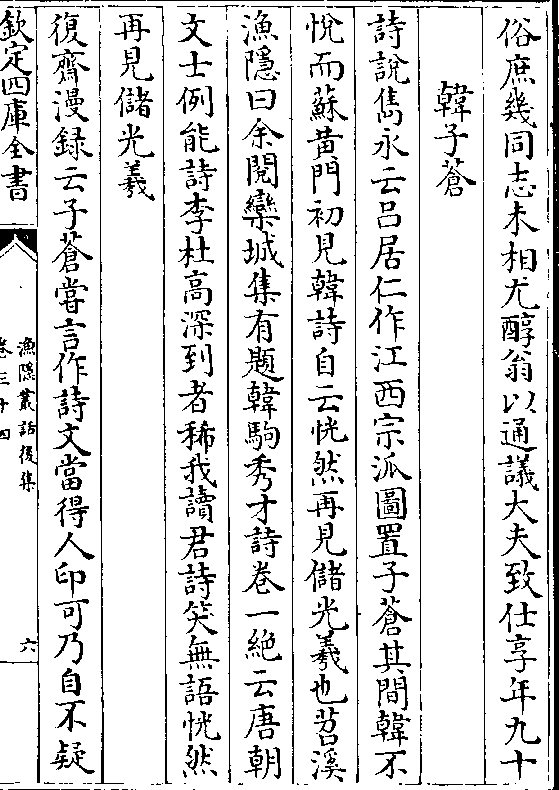 俗庶幾同志未相尤醇翁以通議大夫致仕享年九十
韓子蒼
詩說雋永云吕居仁作江西宗派圖置子蒼其間韓不
悅而蘇黄門初見韓詩自云恍然再見儲光羲也苕溪
漁隱曰余閱欒城集有題韓駒秀才詩卷一絶云唐朝
文士例能詩李杜高深到者稀我讀君詩笑無語恍然
再見儲光羲
復齋漫録云子蒼嘗言作詩文當得人印可乃自不疑
欽定四庫全書
漁隱叢話後集
卷三十四
六